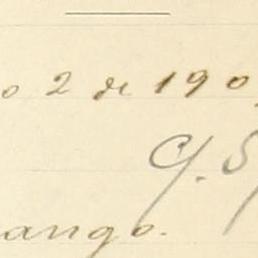 o 2 de 190
C. S
ango.